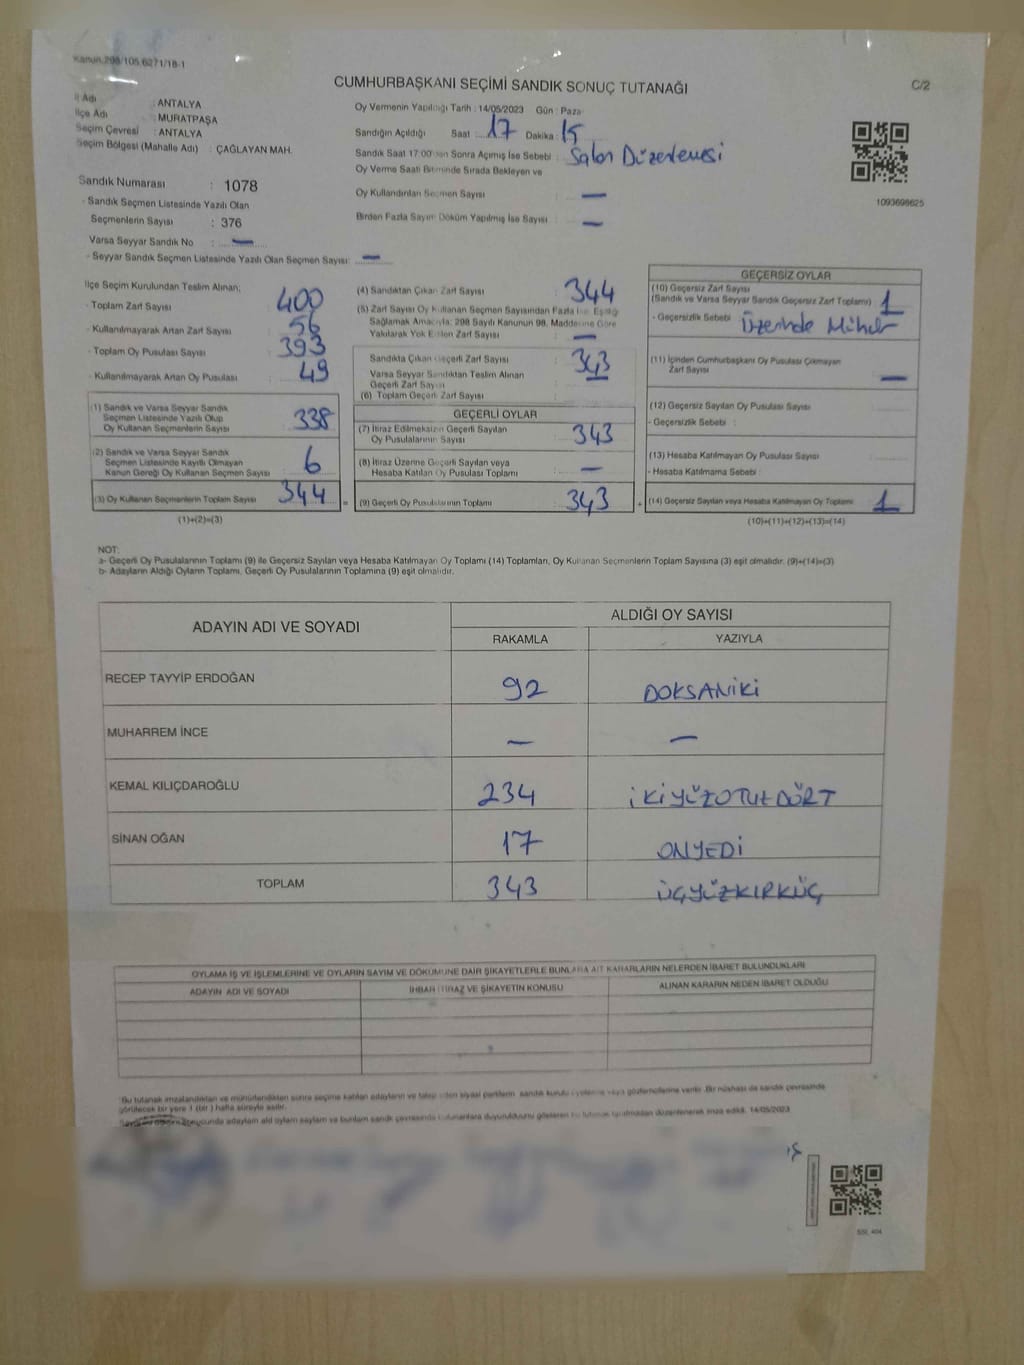 Kanun.298/105,6271/18-1
CUMHURBAŞKANI SEÇİMİ SANDIK SONUÇ TUTANAĞI
C/2
İl Adı : ANTALYA
İlçe Adı : MURATPAŞA
Seçim Çevresi : ANTALYA
Seçim Bölgesi (Mahalle Adı) : ÇAĞLAYAN MAH.
Sandık Numarası : 1078
- Sandık Seçmen Listesinde Yazılı Olan
Seçmenlerin Sayısı : 376
Varsa Seyyar Sandık No : —
- Seyyar Sandık Seçmen Listesinde Yazılı Olan Seçmen Sayısı: —
Oy Vermenin Yapıldığı Tarih : 14/05/2023 Gün : Pazar
Sandığın Açıldığı Saat : 17 Dakika : 15
Sandık Saat 17:00'den Sonra Açımış İse Sebebi : Salon Düzenlemesi
Oy Verme Saati Bitiminde Sırada Bekleyen ve
Oy Kullandırılan Seçmen Sayısı : —
Birden Fazla Sayım Döküm Yapılmış İse Sayısı : —
1093698625
İlçe Seçim Kurulundan Teslim Alınan;
- Toplam Zarf Sayısı 400
- Kullanılmayarak Artan Zarf Sayısı 56
- Toplam Oy Pusulası Sayısı 393
- Kullanılmayarak Artan Oy Pusulası 49
(1) Sandık ve Varsa Seyyar Sandık
Seçmen Listesinde Yazılı Olup
Oy Kullanan Seçmenlerin Sayısı 338
(2) Sandık ve Varsa Seyyar Sandık
Seçmen Listesinde Kayıtlı Olmayan
Kanun Gereği Oy Kullanan Seçmen Sayısı 6
(3) Oy Kullanan Seçmenlerin Toplam Sayısı 344
(1)+(2)=(3)
(4) Sandıktan Çıkan Zarf Sayısı 344
(5) Zarf Sayısı Oy Kullanan Seçmen Sayısından Fazla İse, Eşitliği
Sağlamak Amacıyla; 298 Sayılı Kanunun 98. Maddesine Göre
Yakılarak Yok Edilen Zarf Sayısı —
Sandıkta Çıkan Geçerli Zarf Sayısı 343
Varsa Seyyar Sandıktan Teslim Alınan
Geçerli Zarf Sayısı —
(6) Toplam Geçerli Zarf Sayısı
GEÇERLİ OYLAR
(7) İtiraz Edilmeksizin Geçerli Sayılan
Oy Pusulalarının Sayısı 343
(8) İtiraz Üzerine Geçerli Sayılan veya
Hesaba Katılan Oy Pusulası Toplamı —
= (9) Geçerli Oy Pusulalarının Toplamı 343
GEÇERSİZ OYLAR
(10) Geçersiz Zarf Sayısı
(Sandık ve Varsa Seyyar Sandık Geçersiz Zarf Toplamı) 1
- Geçersizlik Sebebi : Üzerinde Mühür
(11) İçinden Cumhurbaşkanı Oy Pusulası Çıkmayan
Zarf Sayısı —
(12) Geçersiz Sayılan Oy Pusulası Sayısı
- Geçersizlik Sebebi :
(13) Hesaba Katılmayan Oy Pusulası Sayısı
- Hesaba Katılmama Sebebi :
+ (14) Geçersiz Sayılan veya Hesaba Katılmayan Oy Toplamı 1
(10)+(11)+(12)+(13)=(14)
NOT:
a- Geçerli Oy Pusulalarının Toplamı (9) ile Geçersiz Sayılan veya Hesaba Katılmayan Oy Toplamı (14) Toplamları, Oy Kullanan Seçmenlerin Toplam Sayısına (3) eşit olmalıdır. (9)+(14)=(3)
b- Adayların Aldığı Oyların Toplamı, Geçerli Oy Pusulalarının Toplamına (9) eşit olmalıdır.
ADAYIN ADI VE SOYADI
ALDIĞI OY SAYISI
RAKAMLA YAZIYLA
RECEP TAYYİP ERDOĞAN 92 DOKSANİKİ
MUHARREM İNCE — —
KEMAL KILIÇDAROĞLU 234 İKİYÜZOTUZDÖRT
SİNAN OĞAN 17 ONYEDİ
TOPLAM 343 ÜÇYÜZKIRKÜÇ
OYLAMA İŞ VE İŞLEMLERİNE VE OYLARIN SAYIM VE DÖKÜMÜNE DAİR ŞİKAYETLERLE BUNLARA AİT KARARLARIN NELERDEN İBARET BULUNDUKLARI
ADAYIN ADI VE SOYADI İHBAR İTİRAZ VE ŞİKAYETİN KONUSU ALINAN KARARIN NEDEN İBARET OLDUĞU
Bu tutanak imzalandıktan ve mühürlendikten sonra seçime katılan adayların ve talep eden siyasi partilerin sandık kurulu üyelerine veya gözlemcilerine verilir. Bir nüshası da sandık çevresinde
görülecek bir yere 1 (bir) hafta süreyle asılır.